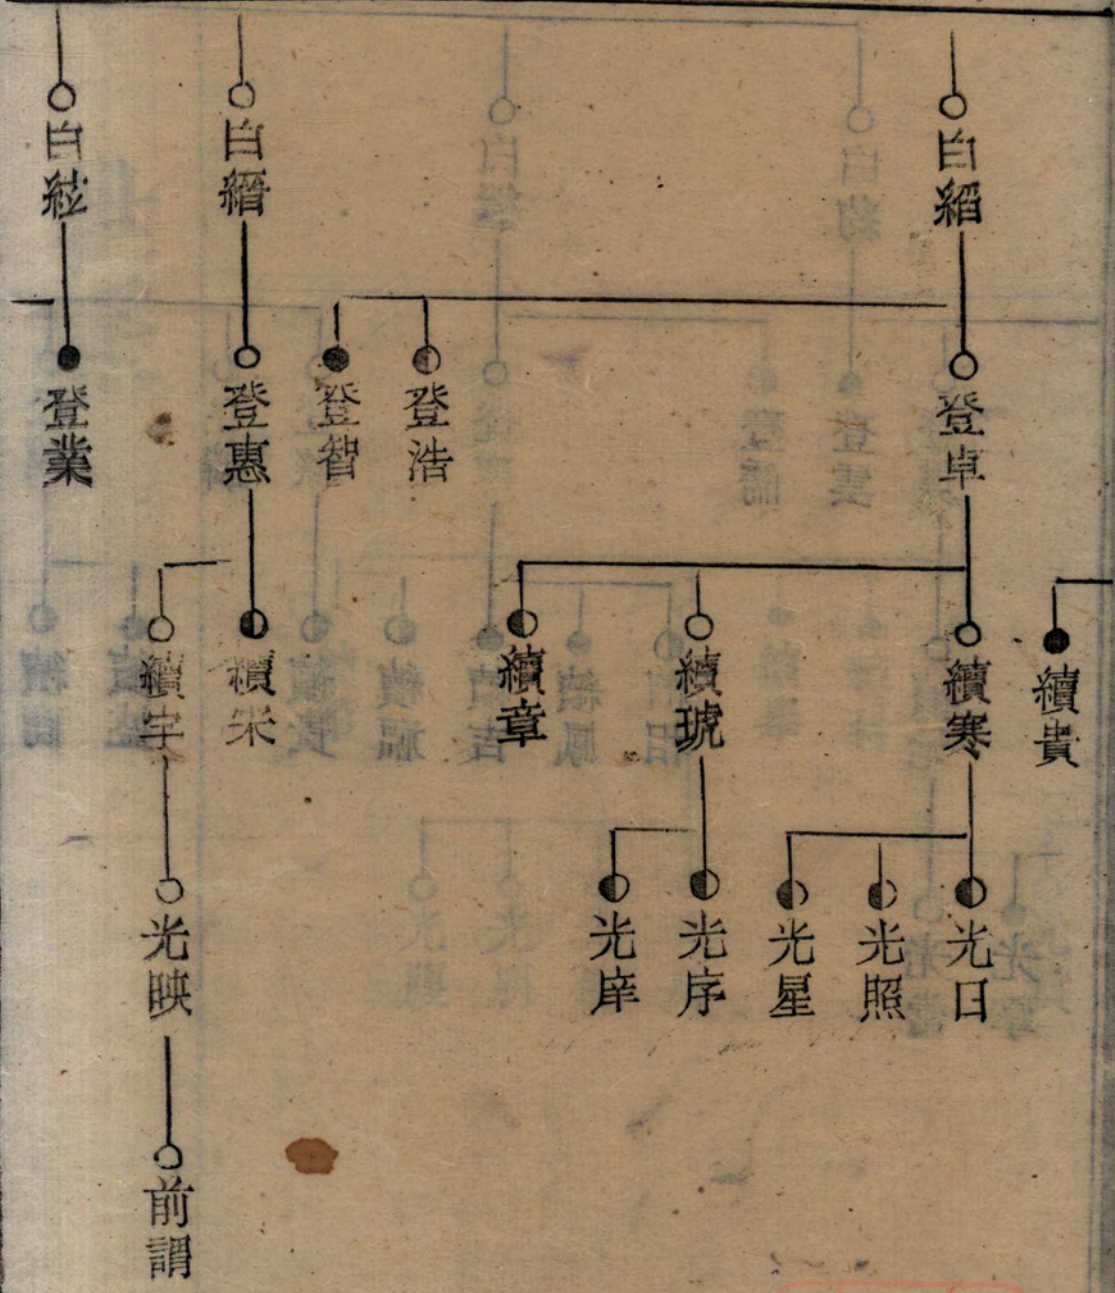 白縚
白縉
白綋
登卓
登浩
登智
登惠
登業
續貴
續寒
續琥
續章
續榮
續宇
光日
光照
光星
光序
光庠
光映
前謂